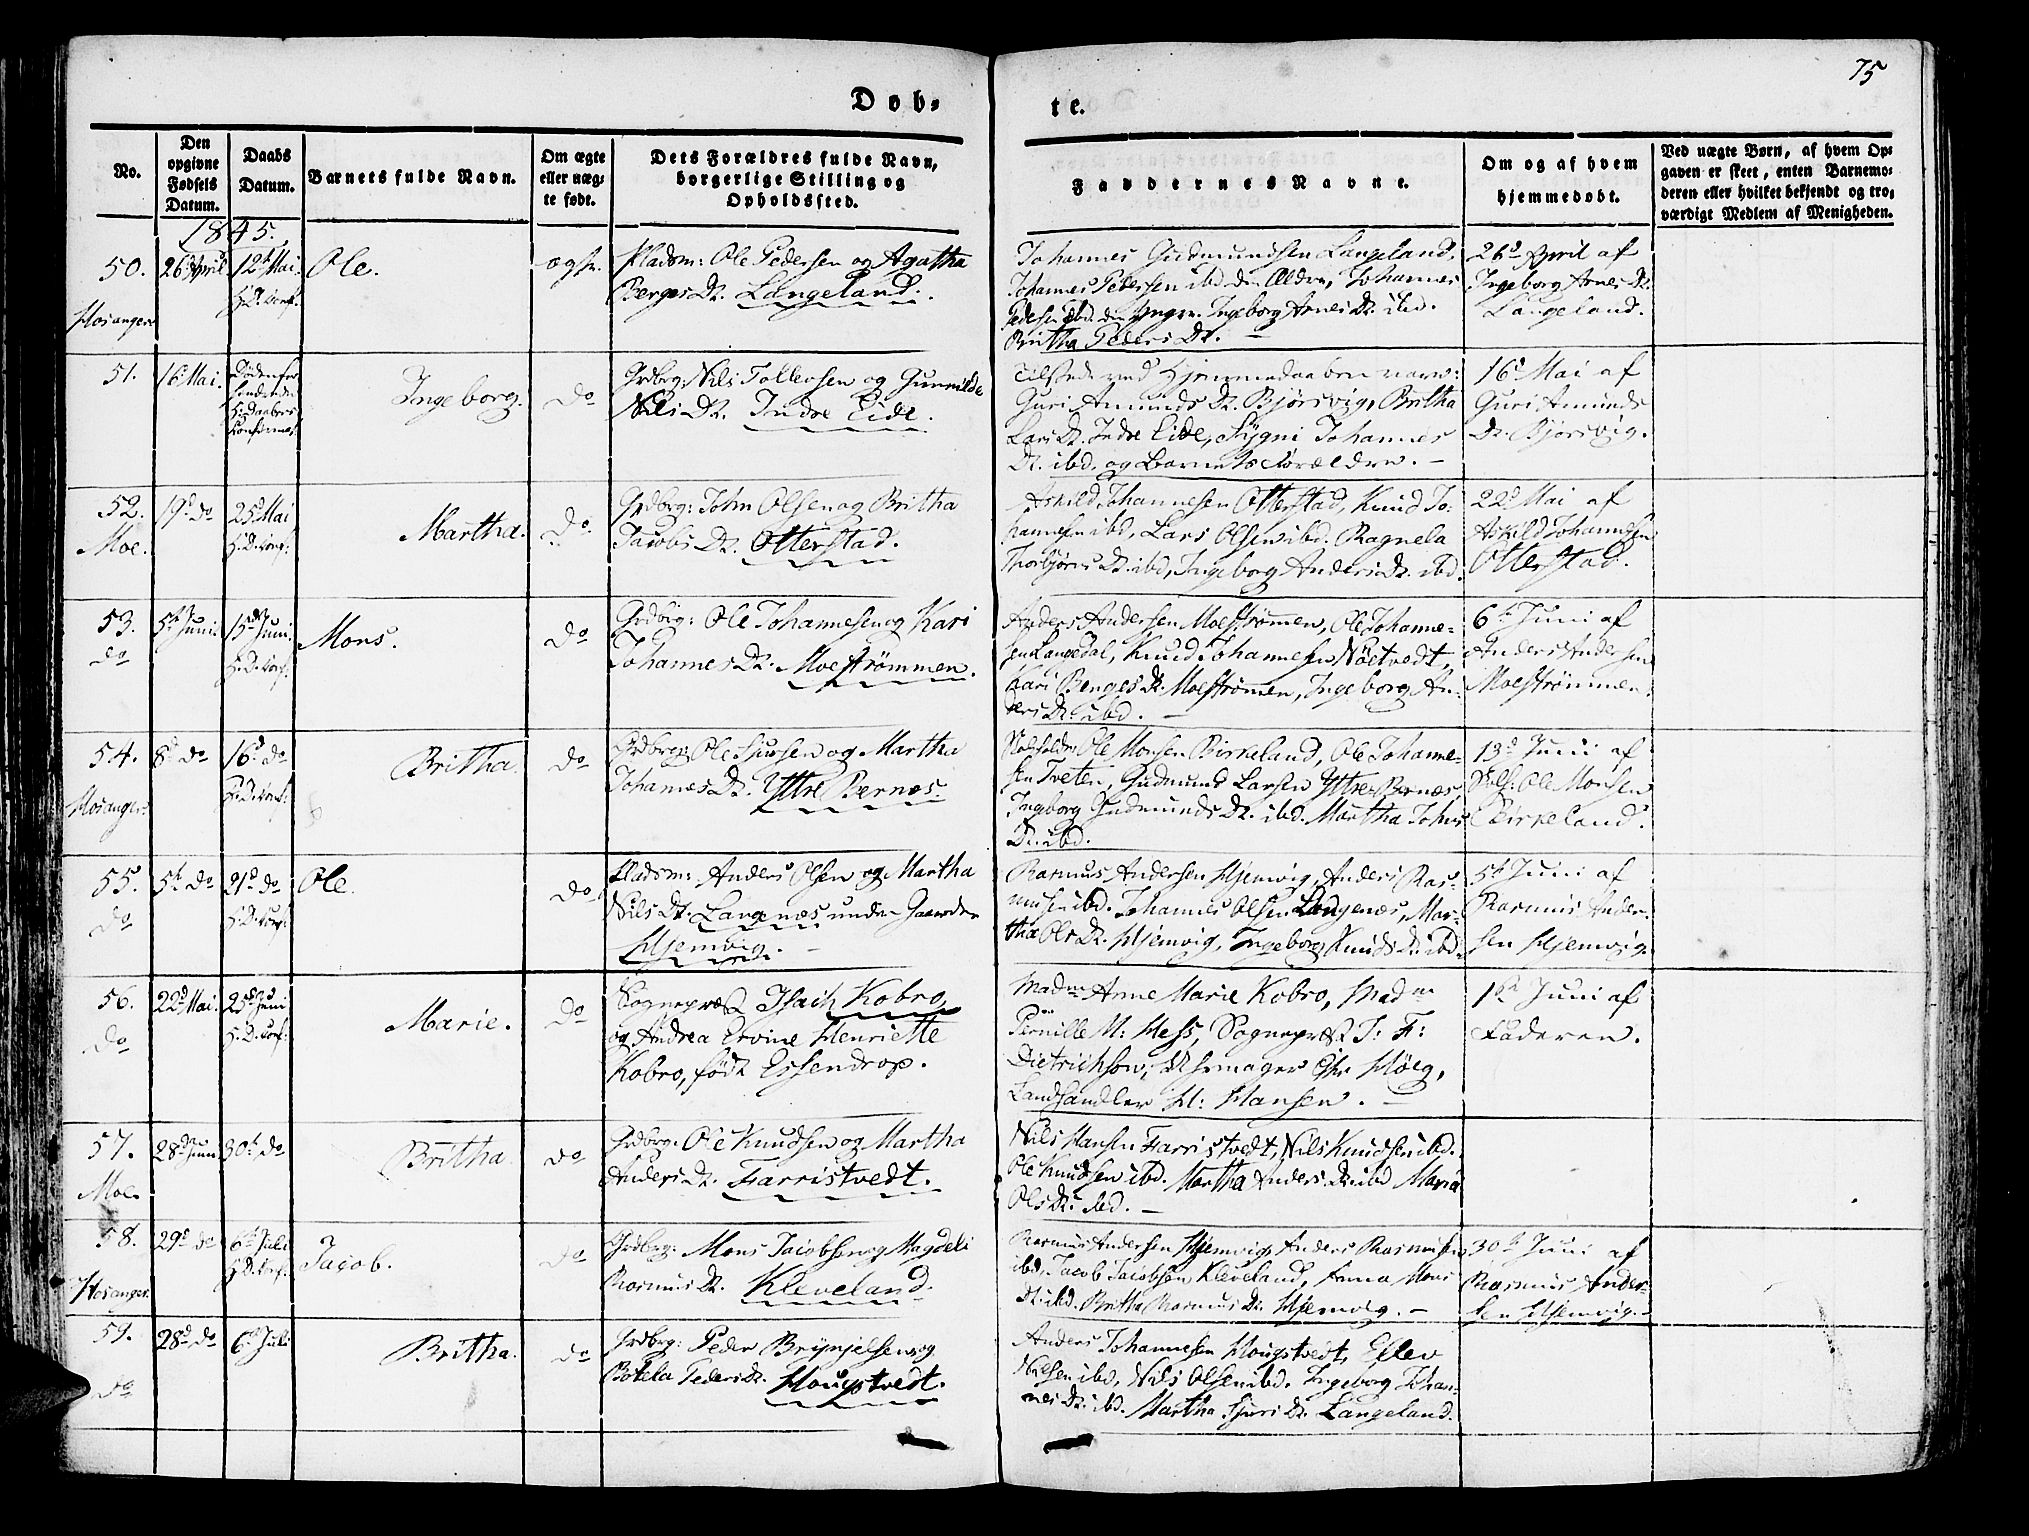 75
Døb-
te.
No.
Den
opgivne
Fødsels
Datum.
Daabs
Datum.
Barnets fulde Navn.
Om ægte
eller uæg-
te født.
Dets Forældres fulde Navn,
borgerlige Stilling og
Opholdssted.
Faddernes Navne.
Om og af hvem
hjemmedøbt.
Ved uægte Børn, af hvem Op-
gaven er skeet, enten Barnemo-
deren eller hvilket bekjendt og tro-
værdigt Medlem af Menigheden.
1845.
50.
Hosanger
26 April
12te Mai
H: D. Conf:
Ole.
ægte.
Pladsm: Ole Pedersen og Agatha
Berges Dr. Langeland.
Johannes Gudmundsen Langeland,
Johannes Pedersen ibd den Ældre, Johannes
Pedersen ibd. den Yngre. Ingeborg Arnes Dr. ibd.
Britha Peders Dr.
26d April af
Ingeborg Arnes Dr.
Langeland.
51.
16 Mai.
Ingeborg.
do
Grdbrg: Nils Tollevsen og Gunnilde
Nils Dr. Indre Eide.
Tilstede ved Hjemmedaaben vare:
Guri Amunds Dr. Bjørsvig, Britha
Lars Dr. Indre Eide, Sygni Johannes
Dr. ibd. og Barnets Forældre.
16d Mai af
Guri Amunds
Dr. Bjørsvig.
52.
Moe.
19d do
25d Mai
H. D. Conf:
Martha.
do
Grdbrg: John Olsen og Britha
Jacobs Dr. Otterstad.
Askild Johannesen Otterstad, Knud Jo-
hannesen ibd, Lars Olsen ibd. Ragnela
Thorbjørns Dr. ibd, Ingeborg Anders Dr. ibd.
22d Mai af
Askild Johannesen
Otterstad.
53.
do
5te Juni.
15de Juni.
H. D. Conf.
Mons.
do
Grdbrg: Ole Johannesen og Kari
Johannes Dr. Moestrømmen.
Anders Andersen Moestrømmen, Ole Johanne-
sen Langedal, Knud Johannesen Nöetvedt,
Kari Benges Dr. Moestrømen, Ingeborg An-
ders Dr. ibd.
6te Juni af
Anders Andersen
Moestrømmen.
54.
Hosanger.
8d do
16d do
H. D. Conf:
Britha.
do
Grdbrg: Ole Sjursen og Martha
Johannes Dr. Yttre Bernes
Skoleholder Ole Monsen Birkeland, Ole Johanne-
sen Tveten, Gudmund Larsen Yttre Bernes
Ingeborg Gudmunds Dr. ibd. Martha Johns
Dr. ibd.
13d Juni af
Skoleh: Ole Monsen
Birkeland.
55.
do
5te do
21d do
H. D. Conf.
Ole.
do
Pladsm: Anders Olsen og Martha
Nils Dr. Langenæs under Gaarden
Hjemvig.
Rasmus Andersen Hjemvig, Anders Ras-
musen ibd. Johannes Olsen Langenæs, Mar-
tha Ols Dr. Hjemvig, Ingeborg Knuds Dr. ibd.
5te Juni af
Rasmus Ander-
sen Hjemvig.
56.
do
22d Mai.
25de Juni
H. D. Conf:
Marie.
do
Sognepræst Isach Kobro
og Andrea Ervine Henriette
Kobro, født Essendrop.
Madme Anne Marie Kobro, Madme
Pernille M: Hess, Sognepræst J: F:
Dietrichson, Chr Höeg,
Landhandler H: Hansen.
1ste Juni af
Faderen.
57.
Moe.
28de Juni
30te do
Britha.
do
Grdbrg: Ole Knudsen og Martha
Anders Dr. Farristvedt.
Nils Hansen Farristvedt, Nils Knudsen ibd.
Ole Knudsen ibd. Martha Anders Dr. ibd Maria
Ols Dr. ibd.
58.
Hosanger.
29d do
6te Juli
H. D. Conf.
Jacob.
do
Grdbrg: Mons Jacobsen og Magdeli
Rasmus Dr. Kleveland.
Rasmus Andersen Hjemvig, Anders Rasmusen
ibd. Jacob Jacobsen Kleveland, Anna Mons
Dr. ibd. Britha Rasmus Dr. Hjemvig.
30te Juni af
Rasmus Ander-
sen Hjemvig.
59.
do
28d do
6te Juli
Britha.
do
Grdbrg: Peder Brynjelsen og
Botela Peders Dr. Hougstvedt.
Anders Johannesen Hougstvedt, Ellev
Nilsen ibd, Nils Olsen ibd. Ingeborg Johan-
nes Dr. ibd. Martha Sjurs Dr. Langeland.